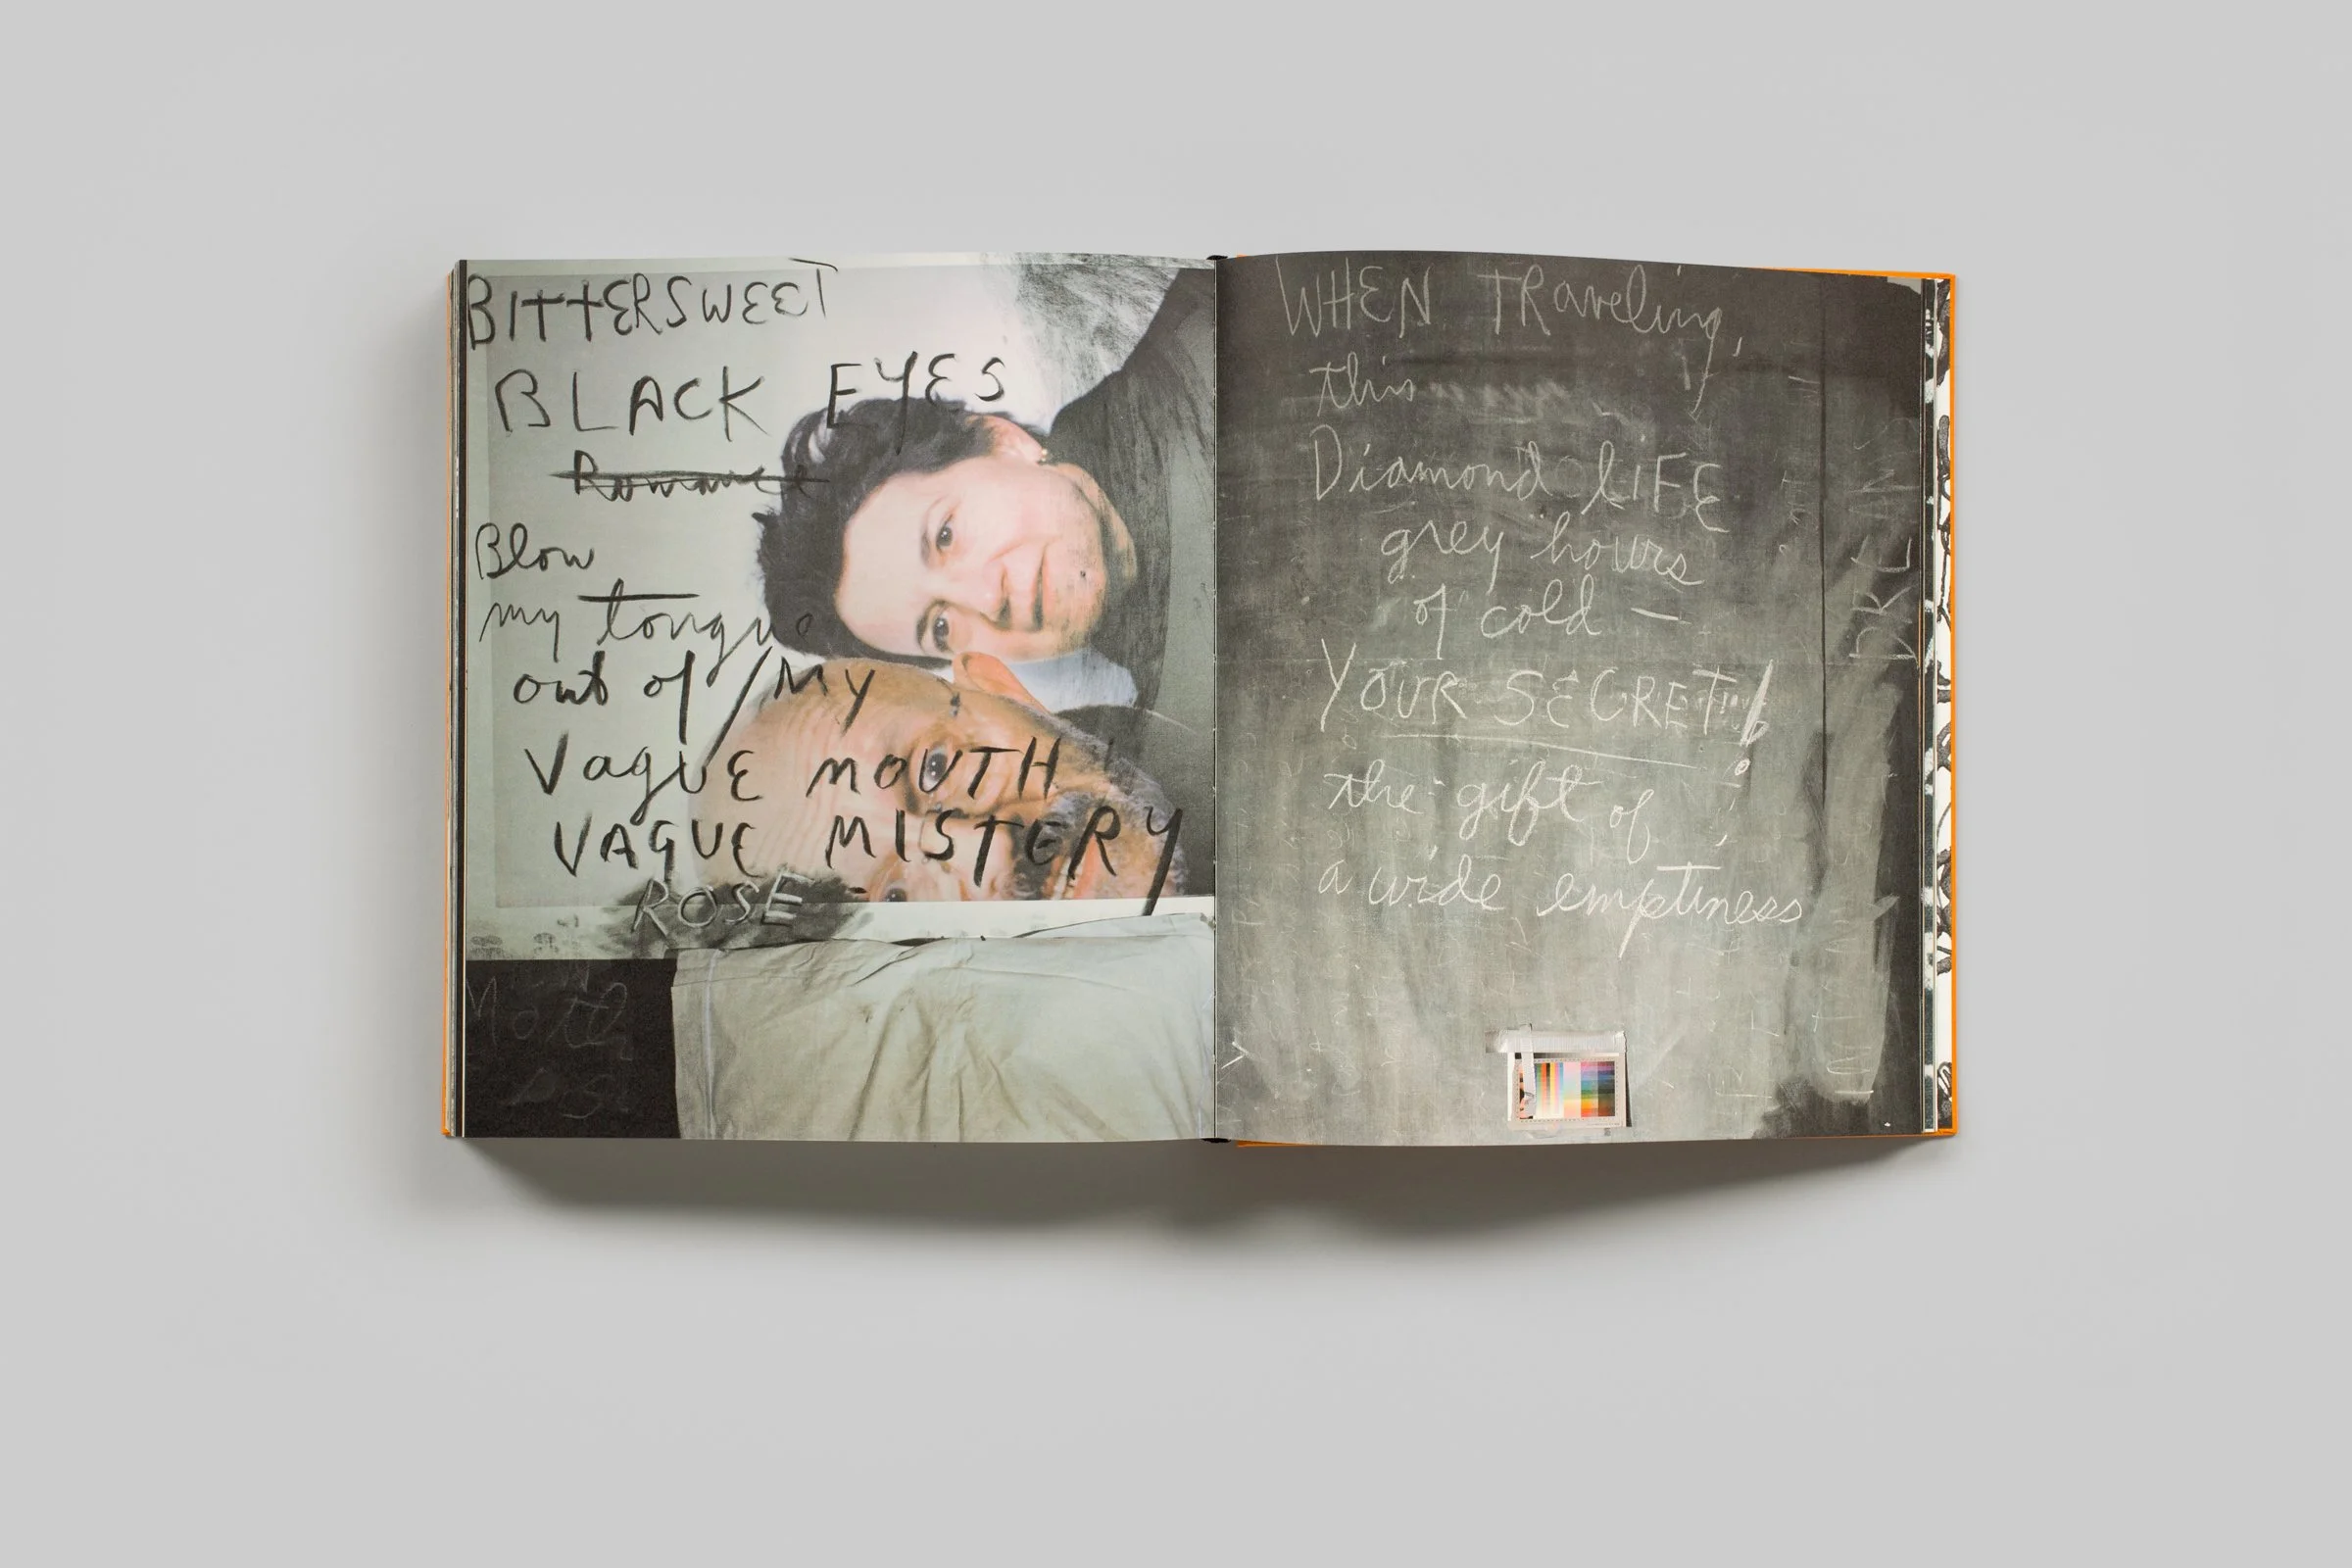 BITTERSWEET
BLACK EYES
Romance
Blow
my tongue
out of / My
VaguE MOUTH
VAGUE MISTERY
ROSE
WHEN TRaveling,
this
Diamond LIFE
grey hours
of cold —
YOUR SECRET!
the gift of
a wide emptiness